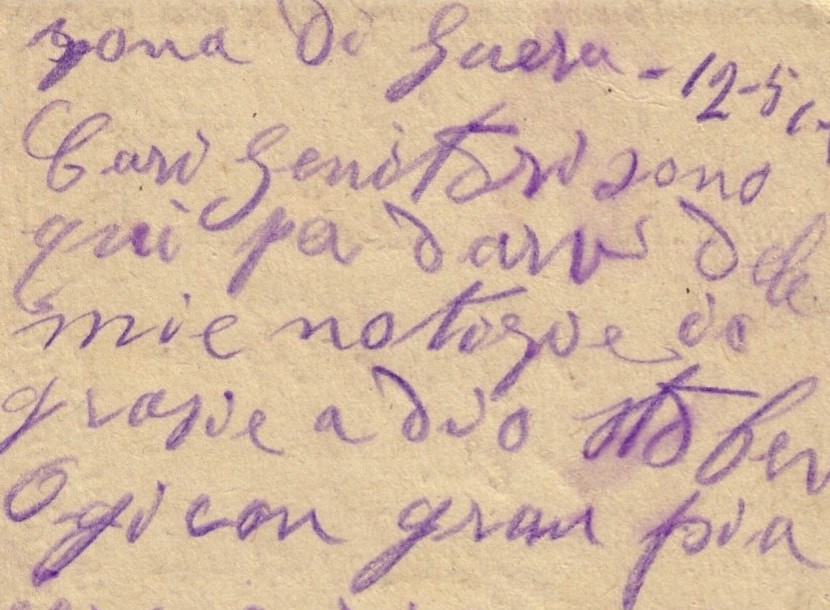 zona di Guera - 12-5
Cari Genitori sono
qui per darvi dele
mie notizie io
grasie a dio sto ben
Ogi con gran pia